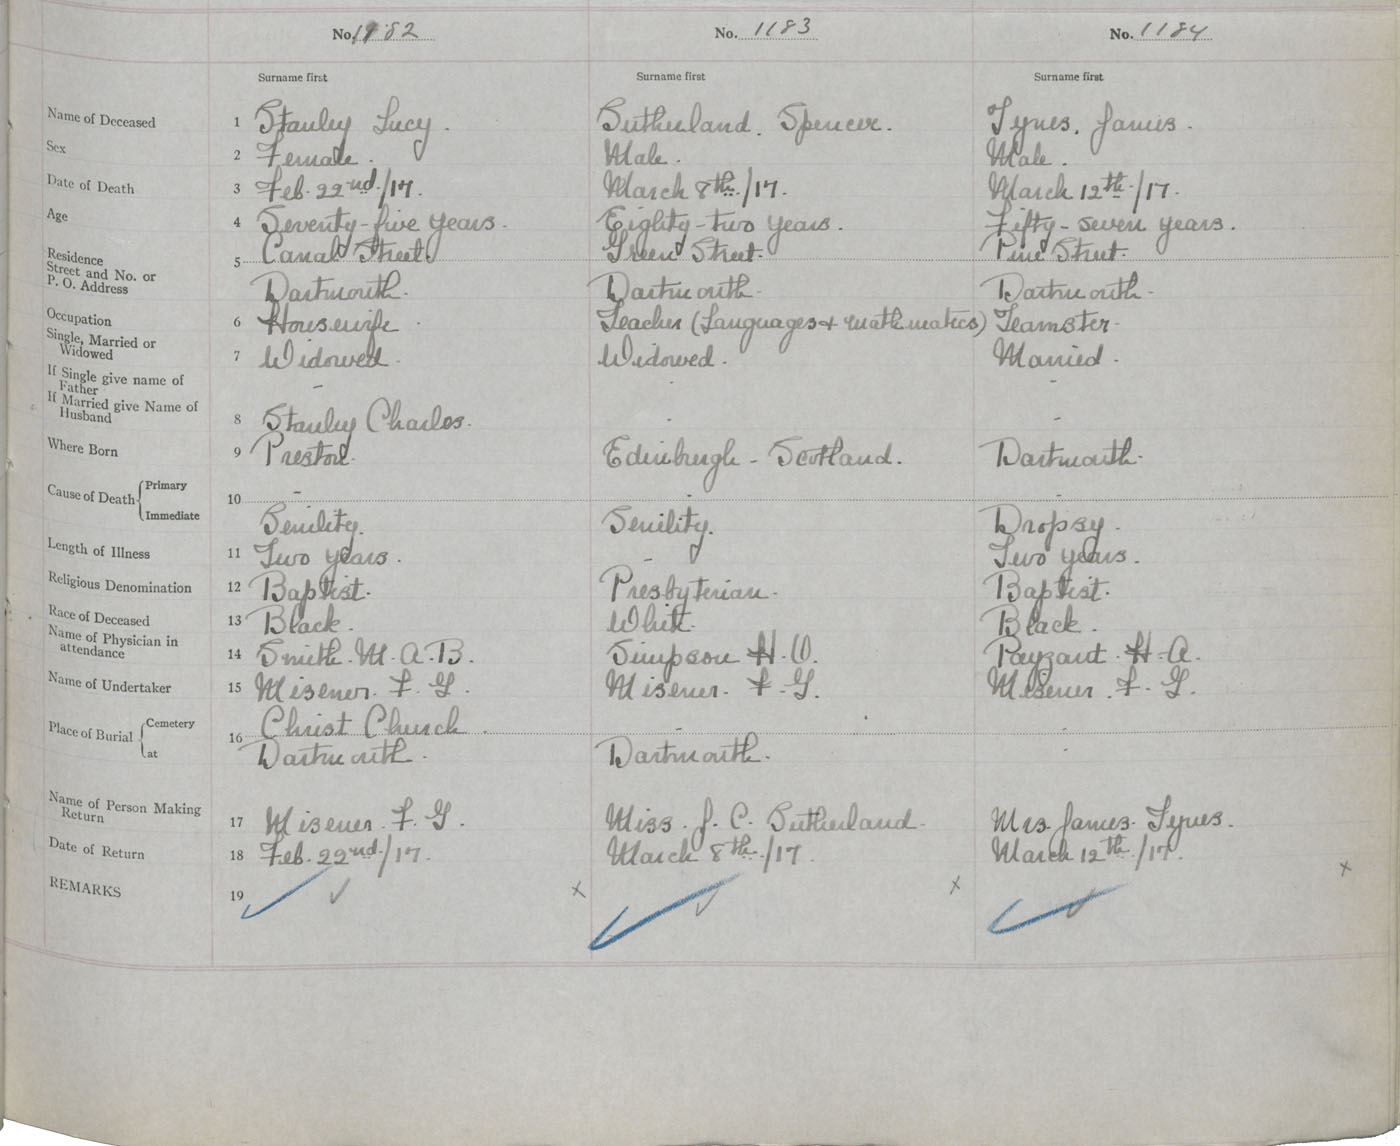 No. 1182 No. 1183 No. 1184
Surname first Surname first Surname first
Name of Deceased 1 Stanley Lucy. Sutherland, Spencer. Tynes, James.
Sex 2 Female. Male. Male.
Date of Death 3 Feb. 22nd/17. March 8th/17. March 12th/17.
Age 4 Seventy-five years. Eighty-two years. Fifty-seven years.
Residence Canal Street. Green Street. Pine Street.
Street and No. or 5
P. O. Address Dartmouth. Dartmouth. Dartmouth.
Occupation 6 Housewife. Teacher (Languages & Mathematics) Teamster.
Single, Married or
Widowed 7 Widowed. Widowed. Married.
If Single give name of
Father - - -
If Married give Name of
Husband 8 Stanley Charles. - -
Where Born 9 Preston. Edinburgh - Scotland. Dartmouth.
Cause of Death Primary 10 - - -
Immediate Senility. Senility. Dropsy.
Length of Illness 11 Two years. - Two years.
Religious Denomination 12 Baptist. Presbyterian. Baptist.
Race of Deceased 13 Black. White. Black.
Name of Physician in
attendance 14 Smith. M. A. B. Simpson H. O. Payzant. H. A.
Name of Undertaker 15 Misener. F. G. Misener. F. G. Misener. F. G.
Place of Burial Cemetery 16 Christ Church. - -
at Dartmouth. Dartmouth. -
Name of Person Making
Return 17 Misener. F. G. Miss. J. C. Sutherland. Mrs. James. Tynes.
Date of Return 18 Feb. 22nd/17. March 8th/17. March 12th/17.
REMARKS 19